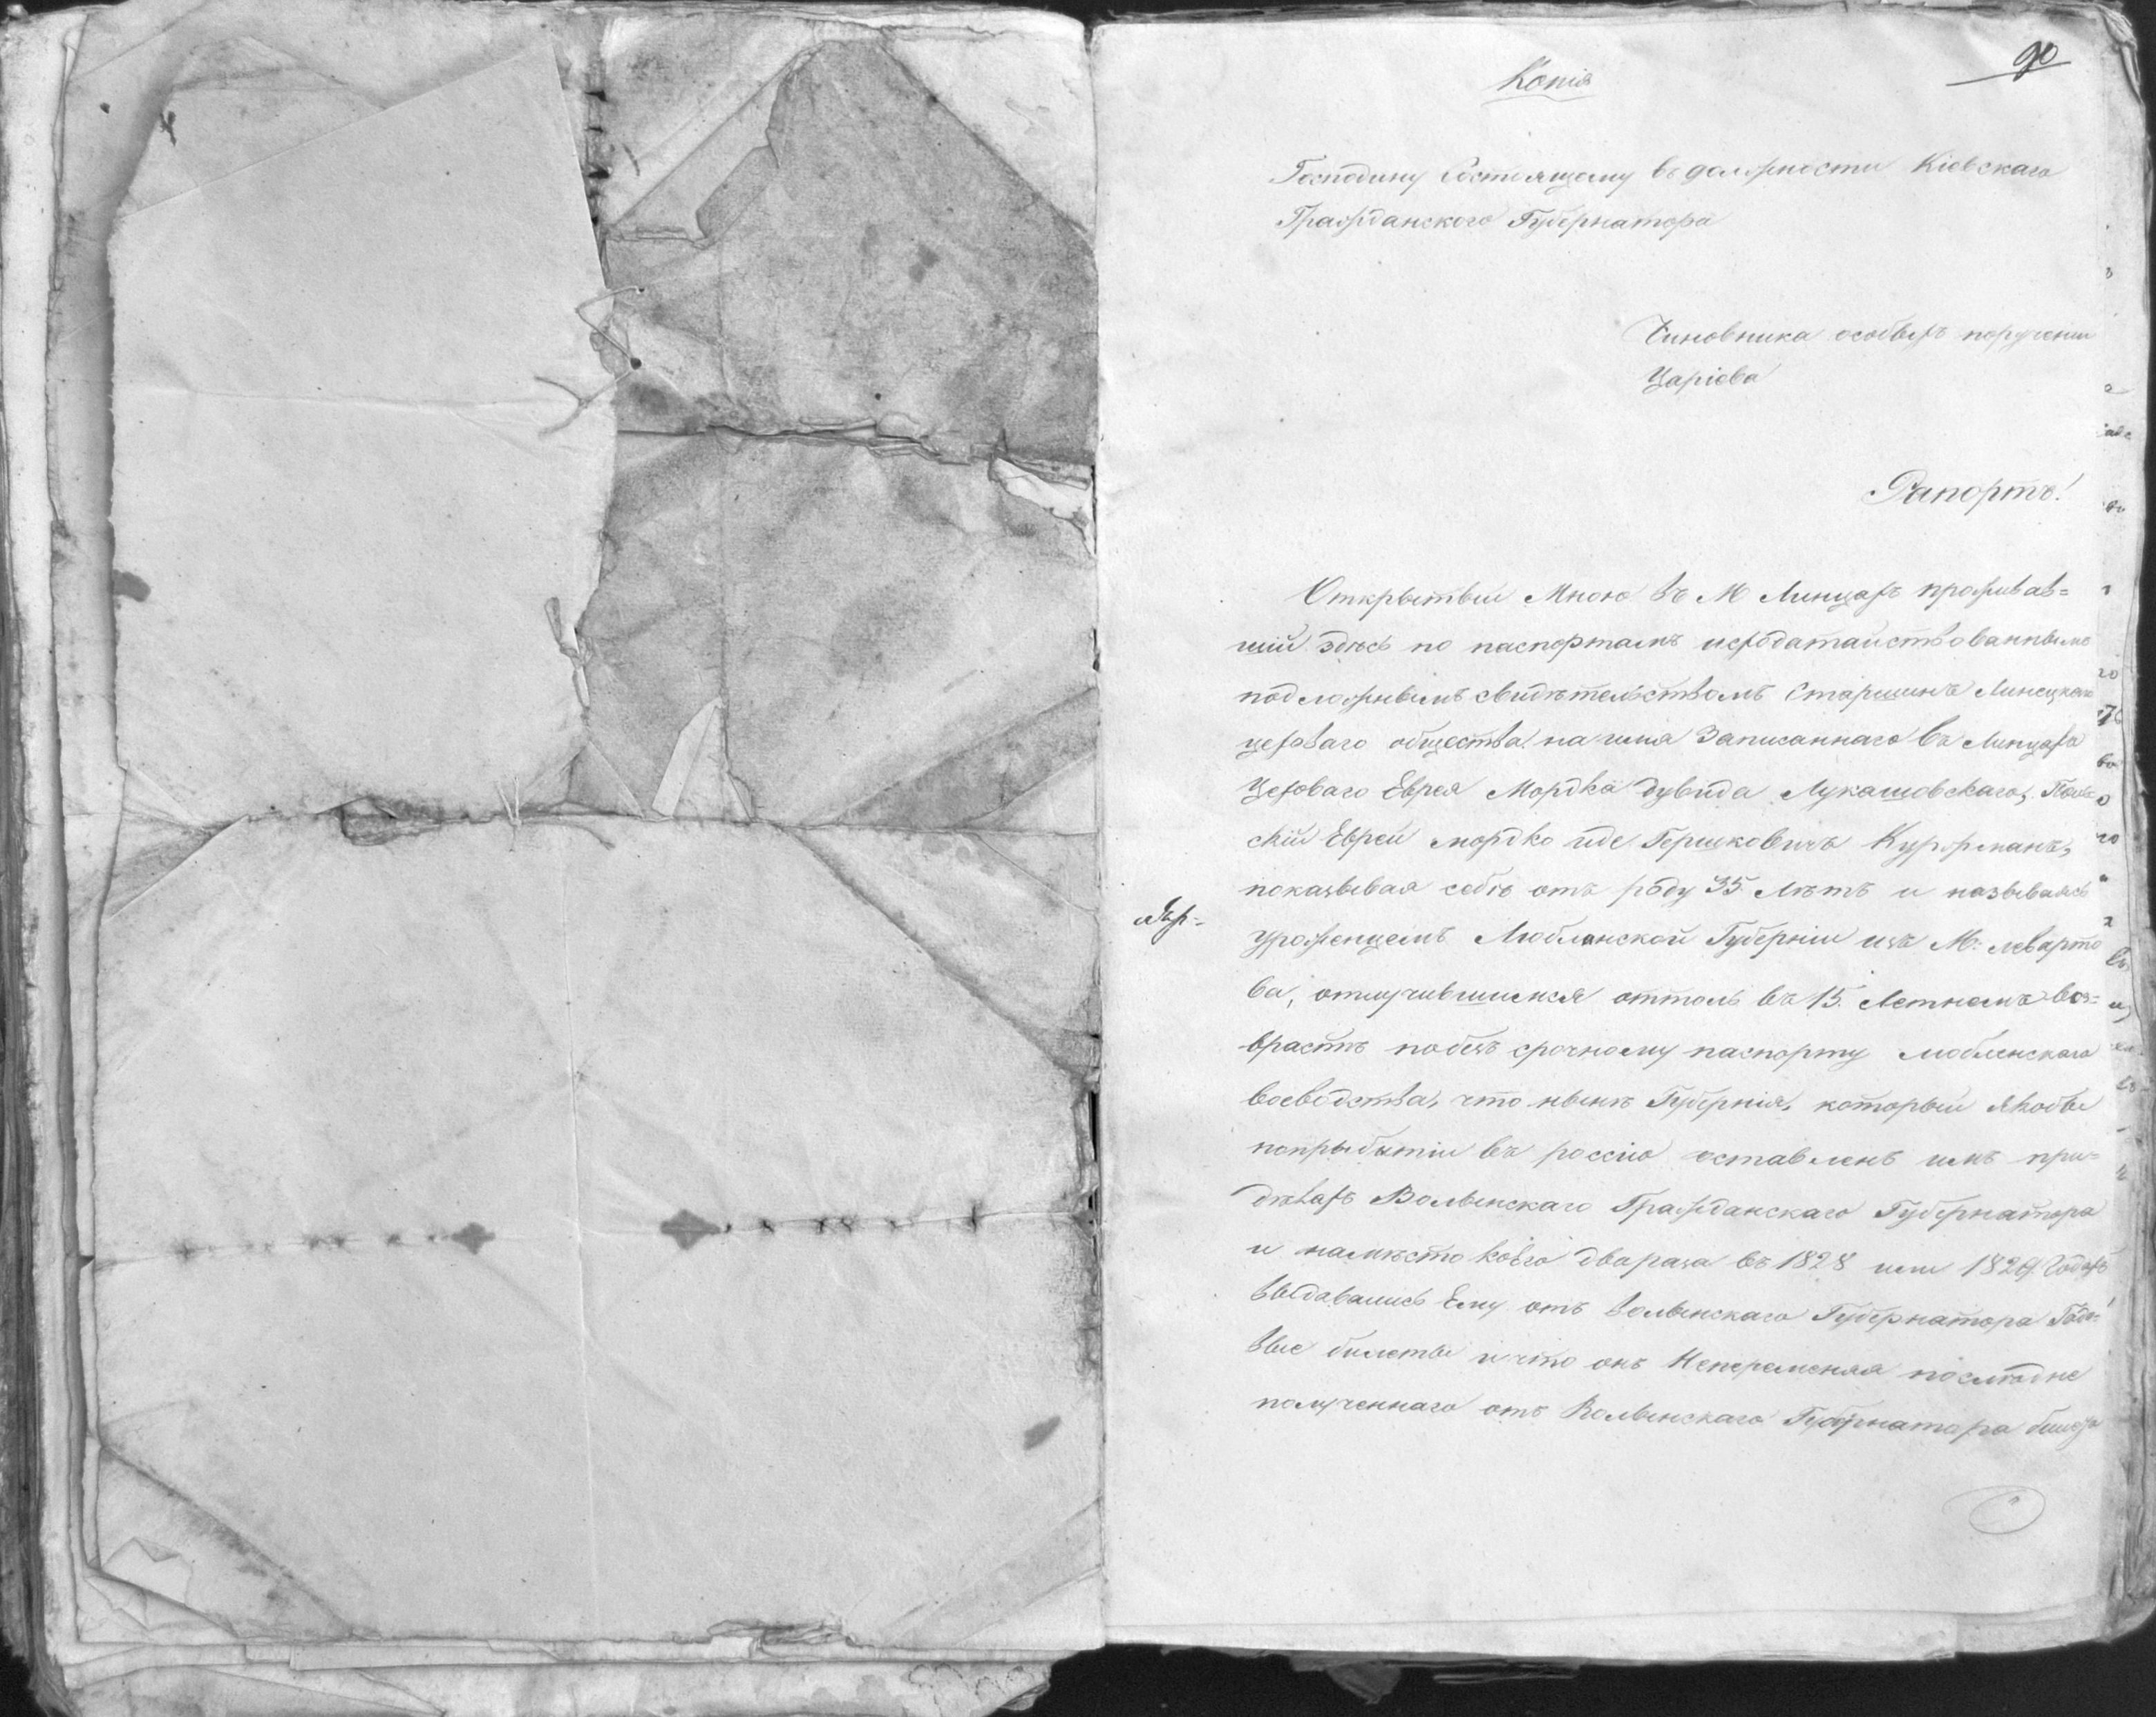 90
Копія
Господину Состоящему въ должности Кіевскаго
Гражданского Губернатора
Чиновника особыхъ порученіи
Царіова
Рапортъ!
Открытыи Мною въ М Линцахъ проживав=
шій здѣсь по паспортамъ исходатайствованнымъ
подложнымъ свидѣтельствомъ Старшинъ Линецкаго
цеховаго общества на имя Записаннаго въ Линцахъ
Цеховаго Еврея Мордка Дувида Лукашовскаго, Поль
скій Еврей мордко иде Гершковичъ Куржманъ,
показывая себѣ отъ роду 35 Лѣтъ и называясь
уроженцемъ Люблинской Губерніи изъ М: леварто
ва, отлучившимся оттоль въ 15. Летнемъ воз=
врастѣ побезъ срочному паспорту люблинскаго
воеводства, что нынѣ Губернія, которыи якобы
попрыбытіи въ россію оставленъ имъ при=
дѣлахъ Волынскаго Гражданскаго Губернатора
и намѣсто коего двараза въ 1828 или 1829 Годахъ
выдавались Ему отъ волынскаго Губернатора Годо=
вые билеты и что онъ Неперименяя послѣдне
полученнаго отъ Волынскаго Губернатора билета